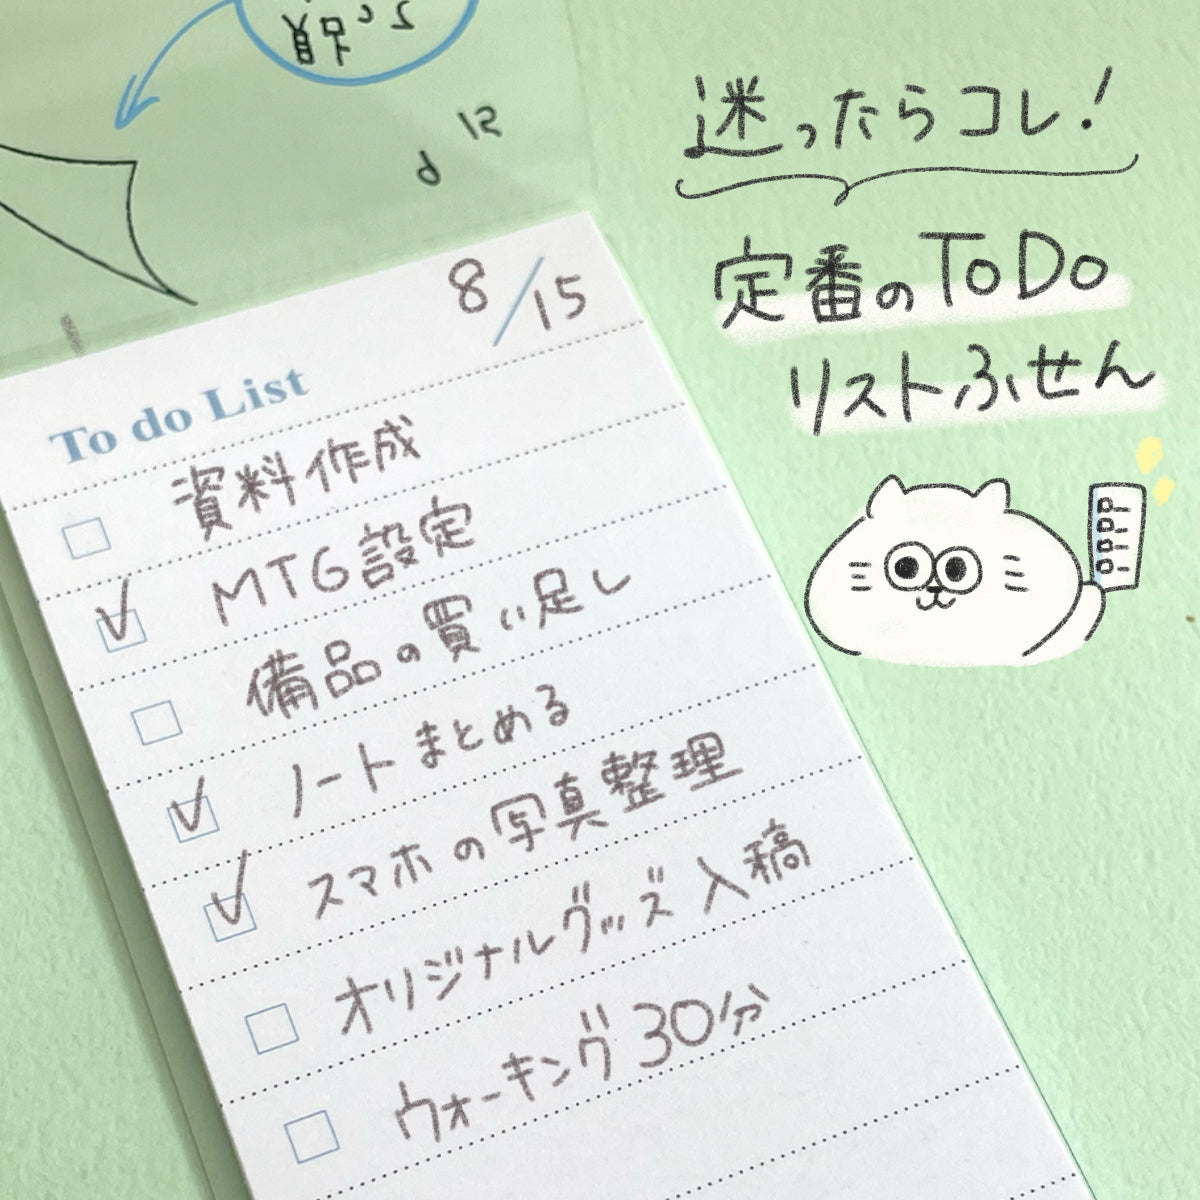 迷ったらコレ!
定番のToDo
リストふせん
8/15
To do List
資料作成
MTG設定
備品の買い足し
ノートまとめる
スマホの写真整理
オリジナルグッズ入稿
ウォーキング30分